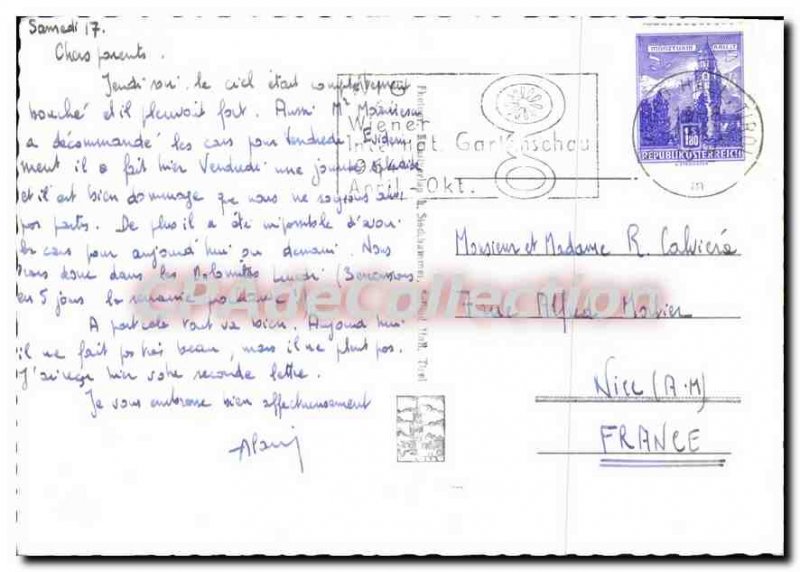 Samedi 17.
Chers parents.
Jeudi soir le ciel était complètement
bouché et il pleuvait fort. Aussi Mr
a décommandé les cars pour Vendredi. Evidem
ment il a fait hier Vendredi une journée splendide
et il est bien dommage que nous ne soyons
pas partis. De plus il a été impossible d'avoir
les cars pour aujourd'hui ou demain. Nous
irons donc dans les Dolomites Lundi (3 excursions
en 5 jours la semaine prochaine !)
A part cela tout va bien. Aujourd'hui
il ne fait pas très beau, mais il ne pleut pas.
J'ai reçu hier votre seconde lettre.
Je vous embrasse bien affectueusement
Alain
Wiener
Internat. Gartenschau
1964
April - Okt.
MÜNZTURM HALL T.
S 1.80
REPUBLIK ÖSTERREICH
Monsieur et Madame R. Calviera
Alfred
Nice (A.M)
FRANCE
CPAdeCollection